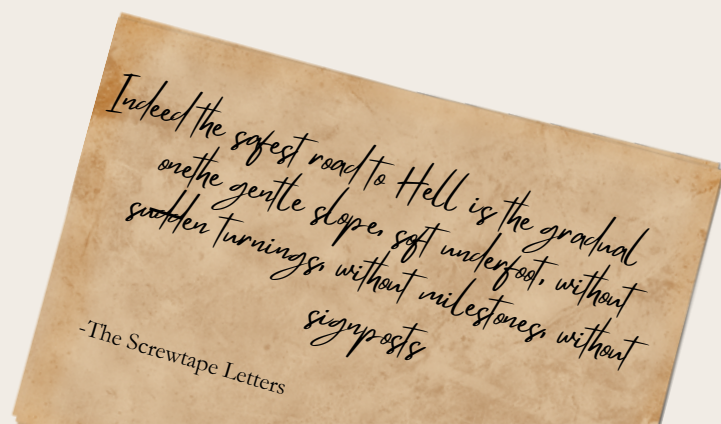 Indeed the safest road to Hell is the gradual
onethe gentle slope, soft underfoot, without
sudden turnings, without milestones, without
signposts
-The Screwtape Letters